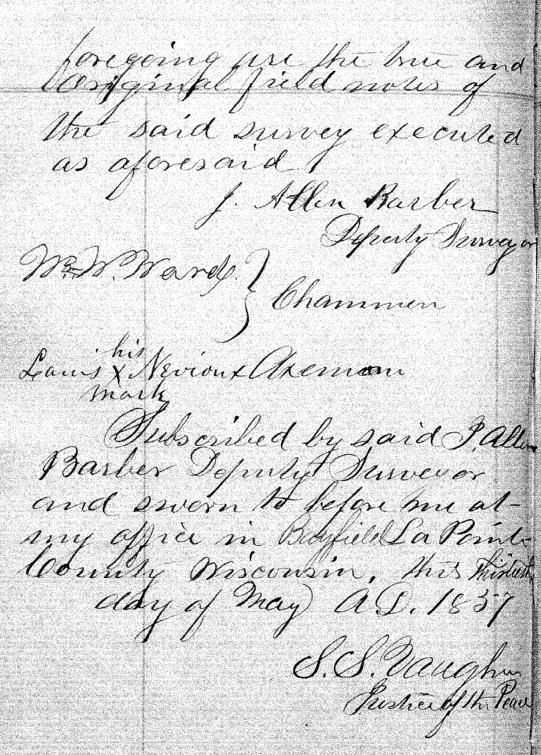 foregoing are the true and
Original field notes of
the said survey executed
as aforesaid
J. Allen Barber
Deputy Surveyor
Wm W. Ward } Chainmen
his
Louis X Nevioux Axeman
mark
Subscribed by said J. Allen
Barber Deputy Surveyor
and sworn to before me at
my office in Bayfield La Point
County Wisconsin, this thirtieth
day of May A.D. 1857
S. S. Vaughn
Justice of the Peace